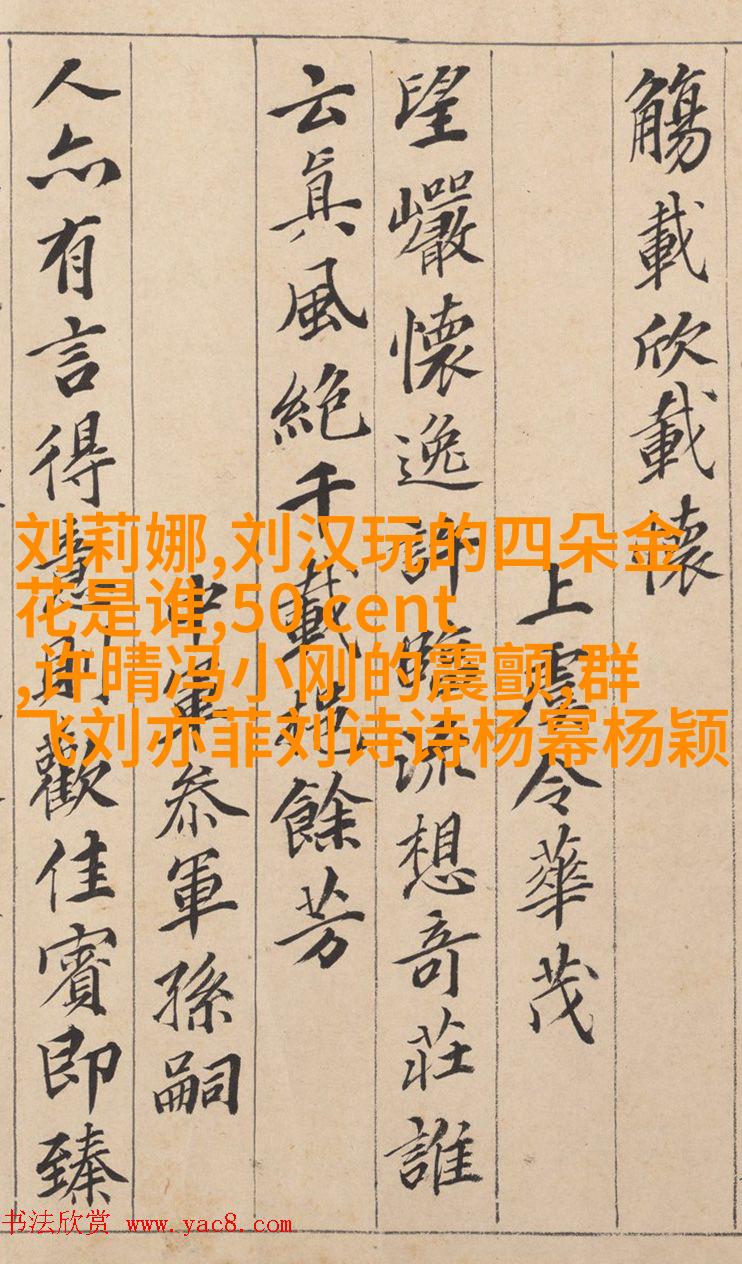 觴載欣載懷
上虞令華茂
望巖懷逸許臨流想奇莊誰
云眞風絕千載挹餘芳
中軍叅軍孫嗣
人亦有言得意則歡佳賓即臻
刘莉娜,刘汉玩的四朵金
花是谁,50 cent
,许晴冯小刚的震颤,群
飞刘亦菲刘诗诗杨幂杨颖
书法欣赏 www.yac8.com